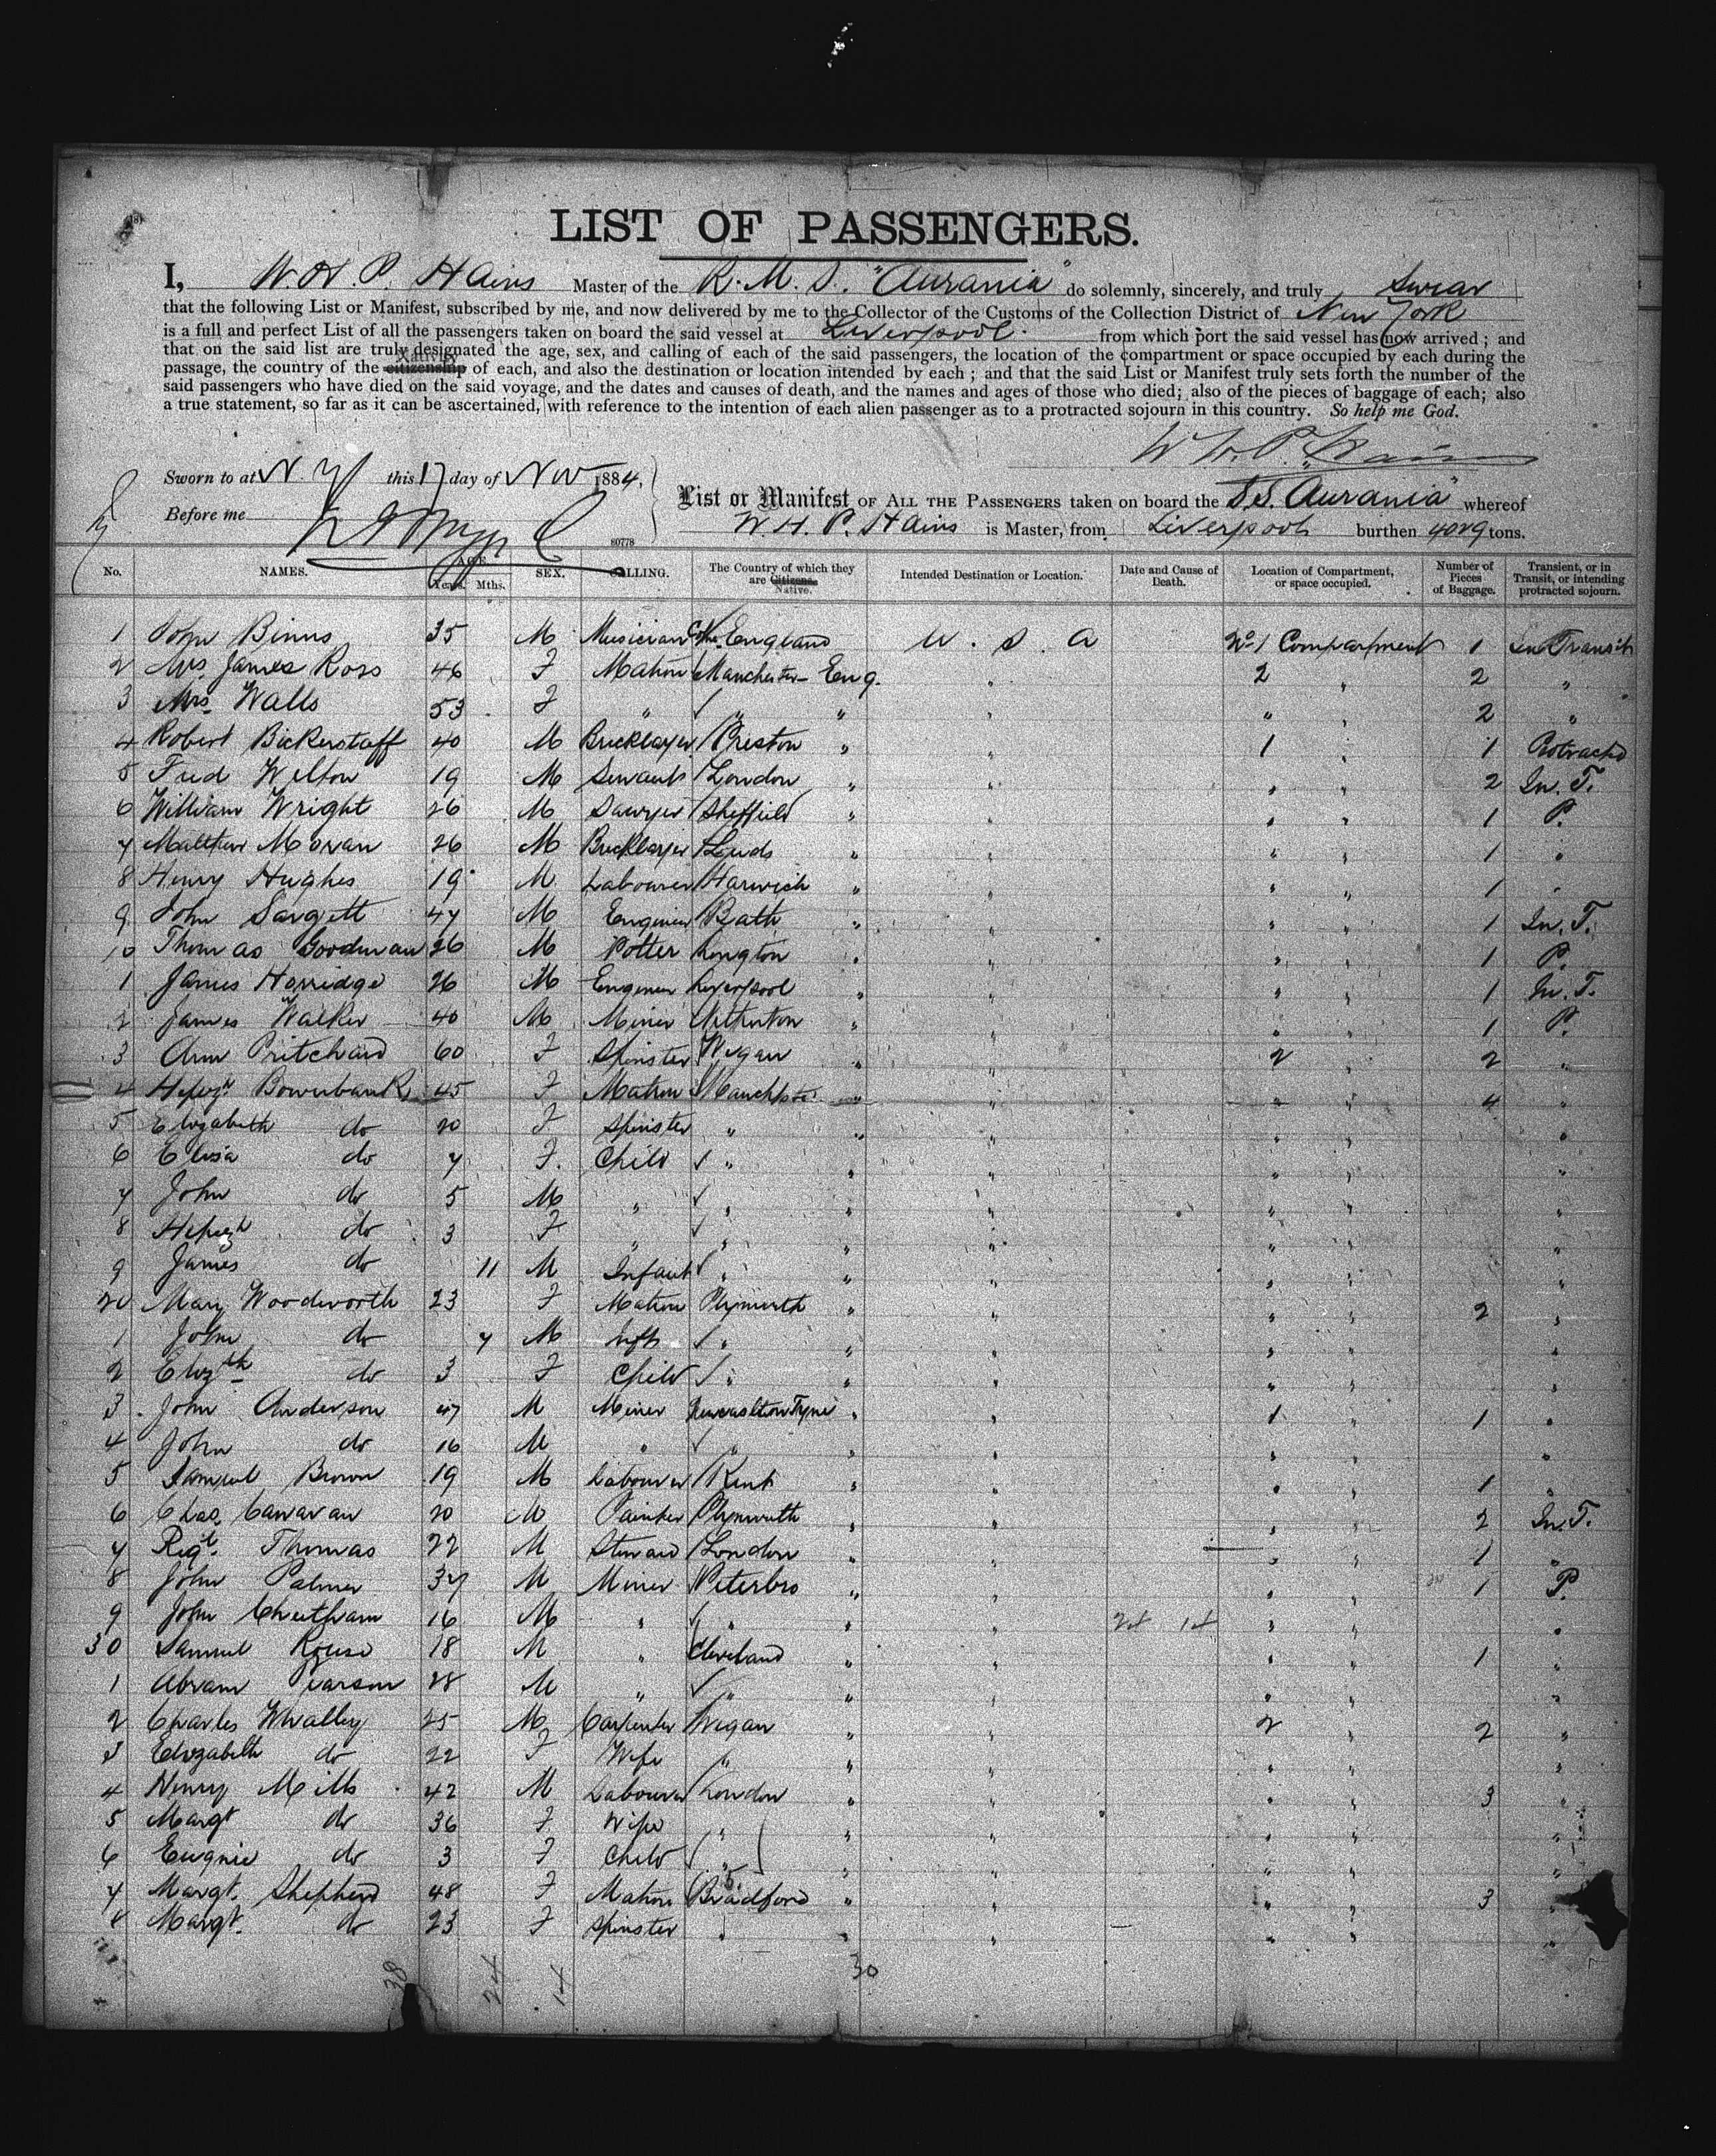 LIST OF PASSENGERS.
I, W. H. P. Hains Master of the R. M. S. "Aurania" do solemnly, sincerely, and truly Swear
that the following List or Manifest, subscribed by me, and now delivered by me to the Collector of the Customs of the Collection District of New York
is a full and perfect List of all the passengers taken on board the said vessel at Liverpool from which port the said vessel has now arrived; and
that on the said list are truly designated the age, sex, and calling of each of the said passengers, the location of the compartment or space occupied by each during the
passage, the country of the citizenship of each, and also the destination or location intended by each; and that the said List or Manifest truly sets forth the number of the
said passengers who have died on the said voyage, and the dates and causes of death, and the names and ages of those who died; also of the pieces of baggage of each; also
a true statement, so far as it can be ascertained, with reference to the intention of each alien passenger as to a protracted sojourn in this country. So help me God.
W. H. P. Hains
Sworn to at N. Y this 17 day of Nov 1884,
Before me
List or Manifest OF ALL THE PASSENGERS taken on board the S.S. Aurania" whereof
W. H. P. Hains is Master, from Liverpool burthen 4029 tons.
80778
No. NAMES. AGE. Years. Mths. SEX. CALLING. The Country of which they are Citizens. Native. Intended Destination or Location. Date and Cause of Death. Location of Compartment, or space occupied. Number of Pieces of Baggage. Transient, or in Transit, or intending protracted sojourn.
1 John Binns 35 M Musician England U. S. A No 1 Compartment 1 In Transit
2 Mrs. James Ross 46 F Matron Manchester Eng. " 2 " 2 "
3 Mrs. Walls 53 F " " " " " " 2 "
4 Robert Bickerstaff 40 M Bricklayer Preston " " 1 " 1 Protracted
5 Fred Welton 19 M Servant London " " " " 2 In. T.
6 William Wright 26 M Sawyer Sheffield " " " " 1 P.
7 Matthew Moran 26 M Bricklayer Leeds " " " " 1 "
8 Henry Hughes 19 M Labourer Harwich " " " " 1 "
9 John Sargett 47 M Engineer Bath " " " " 1 In. T.
10 Thomas Goodman 26 M Potter Longton " " " " 1 P.
1 James Horridge 26 M Engineer Liverpool " " " " 1 In. T.
2 James Walker 40 M Miner Netherton " " " " 1 P.
3 Ann Pritchard 60 F Spinster Wigan " " 2 " 2 "
4 Hepzh Bowerbank 45 F Matron Manchester " " " " 4 "
5 Elizabeth do 20 F Spinster " " " " " "
6 Elisa do 7 F. Child " " " " " "
7 John do 5 M " " " " " " "
8 Hepzh do 3 F " " " " " " "
9 James do 11 M Infant " " " " " "
20 Mary Woodworth 23 F Matron Plymouth " " " " 2 "
1 John do 7 M Inft " " " " " "
2 Elizth do 3 F Child " " " " " "
3 John Anderson 47 M Miner Newcastle on Tyne " " 1 " 1 "
4 John do 16 M " " " " " " "
5 Samuel Brown 19 M Labourer Kent " " " " 1 "
6 Chas. Canavan 20 M Painter Plymouth " " " " 2 In. T.
7 Regt. Thomas 22 M Steward London " " " " 1 "
8 John Palmer 37 M Miner Peterbro " " " " 1 P.
9 John Cheetham 16 M " " " " " " "
30 Samuel Rouse 18 M " Cleveland " " " " 1 "
1 Abram Pearson 28 M " " " " " " "
2 Charles Whalley 25 M Carpenter Wigan " " 2 " 2 "
3 Elizabeth do 22 F Wife " " " " " "
4 Henry Mills 42 M Labourer London " " " " 3 "
5 Margt do 36 F Wife " " " " " "
6 Eugnie do 3 F Child " " " " " "
7 Margt. Shepherd 48 F Matron Bradford " " " " 3 "
8 Margt. do 23 F Spinster " " " " " "
38 24 14 30